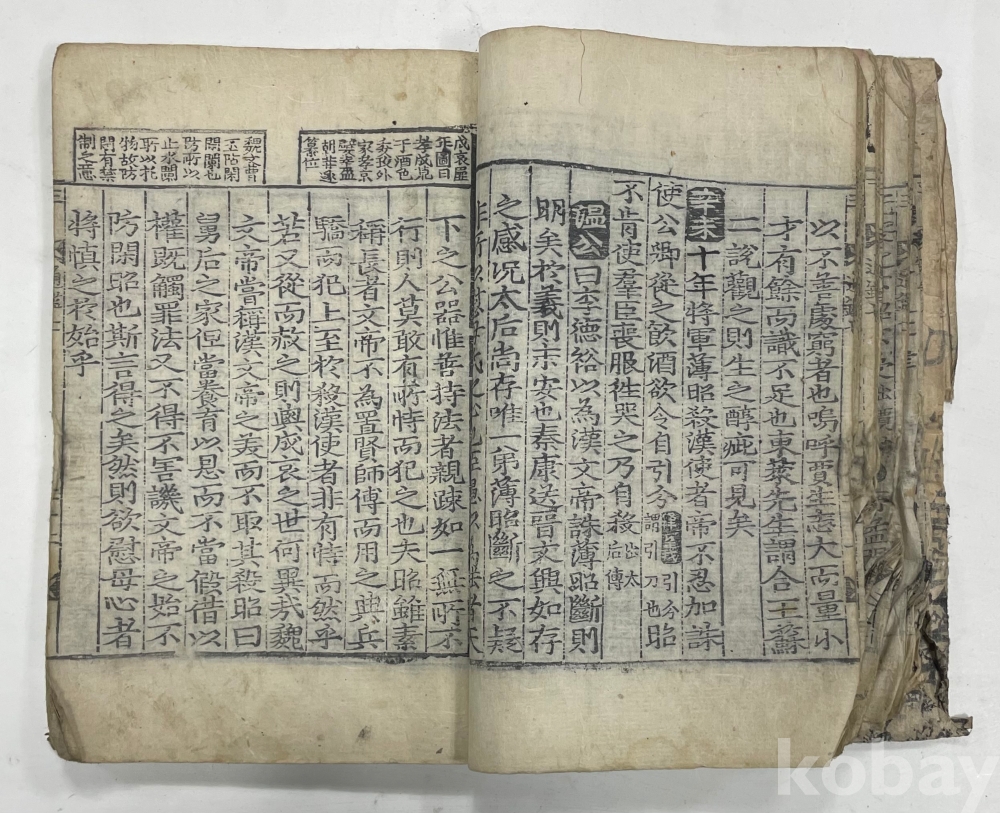 以不善處窮者也嗚呼賈生志大而量小
才有餘而識不足也東萊先生謂合二蘇
二說觀之則生之醇疵可見矣
辛未十年將軍薄昭殺漢使者帝不忍加誅
使公卿從之飲酒欲令自引分引分謂引刀也昭
不肯使羣臣喪服徃哭之乃自殺出太后傳
溫公曰李德裕以為漢文帝誅薄昭斷則
明矣於義則未安也秦康送晉文興如存
之感况太后尚存唯一弟薄昭斷之不疑
非所以慰母氏之心也臣愚以為法者天
成哀
圖曰
孝成
于酒色
委政外
家
簒位
下之公器惟善持法者親疎如一無所不
行則人莫敢有所恃而犯之也夫昭雖素
稱長者文帝不為置賢師傅而用之典兵
驕而犯上至於殺漢使者非有恃而然乎
若又從而赦之則與成哀之世何異㢤魏
魏文曹
丕防閑
閑闌也
防所以
止水閑
所以
物故防
閑有禁
制之意
文帝嘗稱漢文帝之美而不取其殺昭曰
舅后之家但當養育以恩而不當假借以
權既觸罪法又不得不害譏文帝之始不
防閑昭也斯言得之矣然則欲慰母心者
將慎之於始乎
kobay